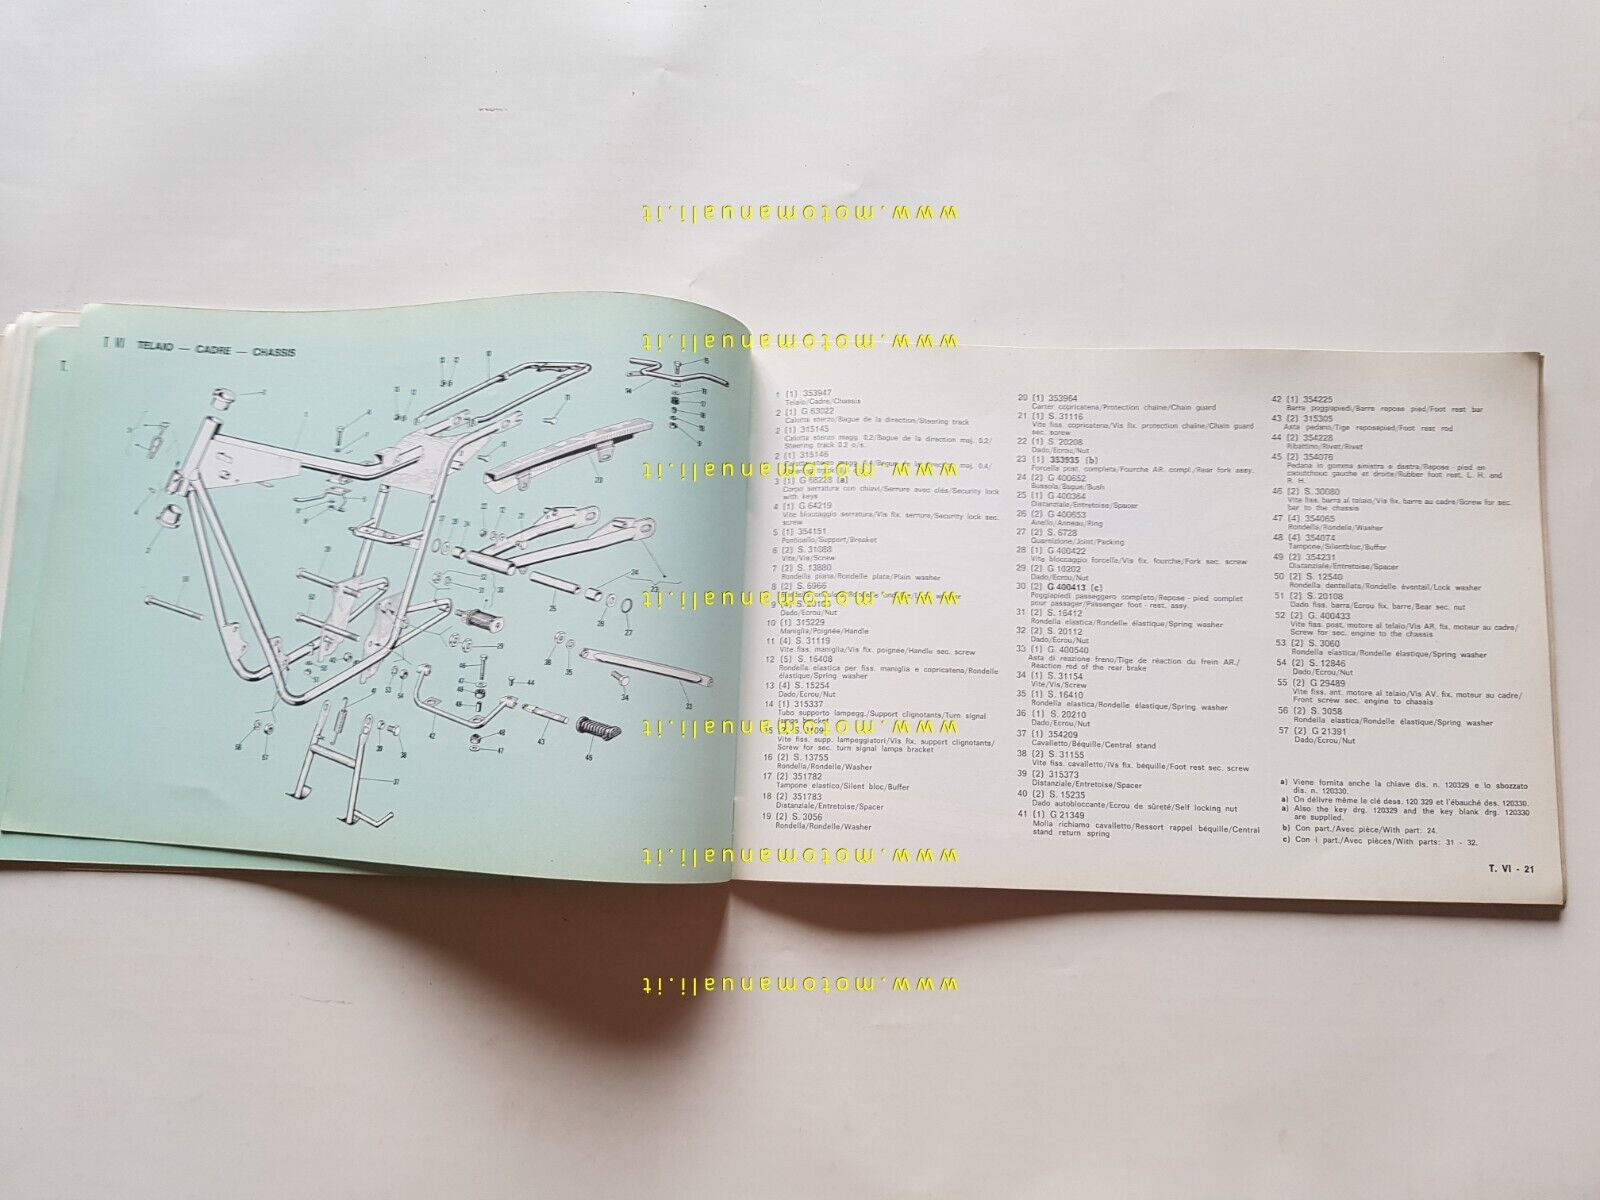 www.motomanuali.it
www.motomanuali.it
www.motomanuali.it
www.motomanuali.it
www.motomanuali.it
www.motomanuali.it
www.motomanuali.it
TELAIO — CADRE — CHASSIS
1 (1) 353947
Telaio/Cadre/Chassis
2 (1) G 63022
Calotta sterzo/Bague de la direction/Steering track
2 (1) 315145
Calotta sterzo magg. 0,2/Bague de la direction maj. 0,2/
Steering track 0,2 o/s.
2 (1) 315146
3 (1) G 68228 (a)
Corpo serratura con chiavi/Serrure avec clés/Security lock
with keys
4 (1) G 64219
Vite bloccaggio serratura/Vis fix. serrure/Security lock sec.
screw
5 (1) 354151
Ponticello/Support/Breaket
6 (2) S. 31088
Vite/Vis/Screw
7 (2) S. 13880
Rondella piana/Rondelle plate/Plain washer
8 (2) S. 6966
9 (4) S. 20103
Dado/Ecrou/Nut
10 (1) 315229
Maniglia/Poignée/Handle
11 (4) S. 31119
Vite fiss. maniglia/Vis fix. poignée/Handle sec. screw
12 (5) S. 16408
Rondella elastica per fiss. maniglia e copricatena/Rondelle
élastique/Spring washer
13 (4) S. 15254
Dado/Ecrou/Nut
14 (1) 315337
Tubo supporto lampegg./Support clignotants/Turn signal
Vite fiss. supp. lampeggiatori/Vis fix. support clignotants/
Screw for sec. turn signal lamps bracket
16 (2) S. 13755
Rondella/Rondelle/Washer
17 (2) 351782
Tampone elastico/Silent bloc/Buffer
18 (2) 351783
Distanziale/Entretoise/Spacer
19 (2) S. 3056
Rondella/Rondelle/Washer
20 (1) 353964
Carter copricatena/Protection chaîne/Chain guard
21 (1) S. 31116
Vite fiss. copricatena/Vis fix. protection chaîne/Chain guard
sec. screw
22 (1) S. 20208
Dado/Ecrou/Nut
23 (1) 353935 (b)
Forcella post. completa/Fourche AR. compl./Rear fork assy.
24 (2) G 400652
Bussola/Bague/Bush
25 (1) G 400364
Distanziale/Entretoise/Spacer
26 (2) G 400653
Anello/Anneau/Ring
27 (2) S. 6728
Guarnizione/Joint/Packing
28 (1) G 400422
Vite bloccaggio forcella/Vis fix. fourche/Fork sec. screw
29 (2) G 10202
Dado/Ecrou/Nut
30 (2) G 400413 (c)
Poggiapiedi passeggero completo/Repose - pied complet
pour passager/Passenger foot - rest. assy.
31 (2) S. 16412
Rondella elastica/Rondelle élastique/Spring washer
32 (2) S. 20112
Dado/Ecrou/Nut
33 (1) G. 400540
Asta di reazione freno/Tige de réaction du frein AR./
Reaction rod of the rear brake
34 (1) S. 31154
Vite/Vis/Screw
35 (1) S. 16410
Rondella elastica/Rondelle élastique/Spring washer
36 (1) S. 20210
Dado/Ecrou/Nut
37 (1) 354209
Cavalletto/Béquille/Central stand
38 (2) S. 31155
Vite fiss. cavalletto/iVs fix. béquille/Foot rest sec. screw
39 (2) 315373
Distanziale/Entretoise/Spacer
40 (2) S. 15235
Dado autobloccante/Ecrou de sûreté/Self locking nut
41 (1) G 21349
Molla richiamo cavalletto/Ressort rappel béquille/Central
stand return spring
42 (1) 354225
Barra poggiapiedi/Barre repose pied/Foot rest bar
43 (2) 315305
Asta pedano/Tige reposepied/Foot rest rod
44 (2) 354228
Ribattino/Rivet/Rivet
45 (2) 354076
Pedana in gomma sinistra e destra/Repose - pied en
caoutchouc gauche et droite/Rubber foot rest, L. H. and
R. H.
46 (2) S. 30080
Vite fiss. barra al telaio/Vis fix. barre au cadre/Screw for sec.
bar to the chassis
47 (4) 354065
Rondella/Rondelle/Washer
48 (4) 354074
Tampone/Silentbloc/Buffer
49 (2) 354231
Distanziale/Entretoise/Spacer
50 (2) S. 12540
Rondella dentellata/Rondelle éventail/Lock washer
51 (2) S. 20108
Dado fiss. barra/Ecrou fix. barre/Bear sec. nut
52 (2) G. 400433
Vite fiss. post. motore al telaio/Vis AR. fix. moteur au cadre/
Screw for sec. engine to the chassis
53 (2) S. 3060
Rondella elastica/Rondelle élastique/Spring washer
54 (2) S. 12846
Dado/Ecrou/Nut
55 (2) G 29489
Vite fiss. ant. motore al telaio/Vis AV. fix. moteur au cadre/
Front screw sec. engine to chassis
56 (2) S. 3058
Rondella elastica/Rondelle élastique/Spring washer
57 (2) G 21391
Dado/Ecrou/Nut
a) Viene fornita anche la chiave dis. n. 120329 e lo sbozzato
dis. n. 120330.
a) On délivre même le clé dess. 120 329 et l'ébauché des. 120330.
a) Also the key drg. 120329 and the key blank drg. 120330
are supplied.
b) Con part./Avec pièce/With part: 24.
c) Con i part./Avec pièces/With parts: 31 - 32.
T. VI - 21